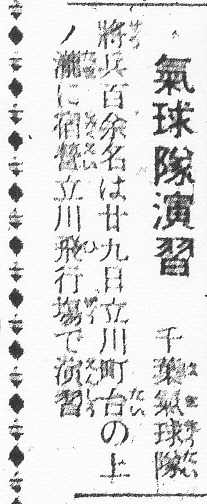 氣球隊演習
千葉氣球隊
將兵百余名は廿九日立川町台の上
ノ瀧に宿營立川飛行場で演習